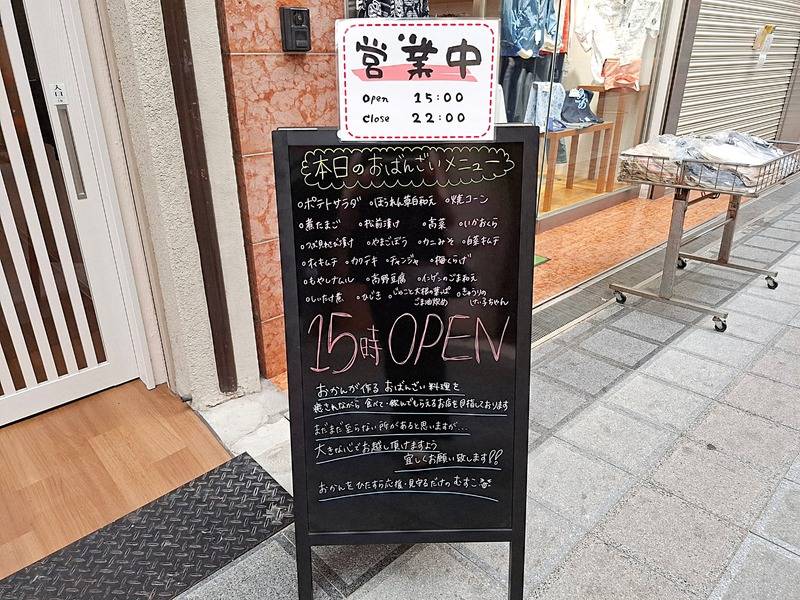 営業中
open 15:00
close 22:00
入口
本日のおばんざいメニュー
○ポテトサラダ ○ほうれん草白和え ○焼コーン
○煮たまご ○松前漬け ○高菜 ○いかおくら
○やまごぼう ○カニみそ ○白菜キムチ
○オイキムチ ○カクテキ ○チャンジャ ○梅くらげ
○もやしナムル ○高野豆腐 ○インゲンのごま和え
○しいたけ煮 ○ひじき ○じゃこと大根の葉っぱ ○きゅうりの
ごま油炒め けい子ちゃん
15時OPEN
おかんが作る おばんざい料理を
癒されながら 食べて・飲んでもらえるお店を目指しております
まだまだ至らない所があると思いますが…
大きな心でお越し頂けますよう
宜しくお願い致します!!
おかんをひたすら応援・見守るだけの むすこ